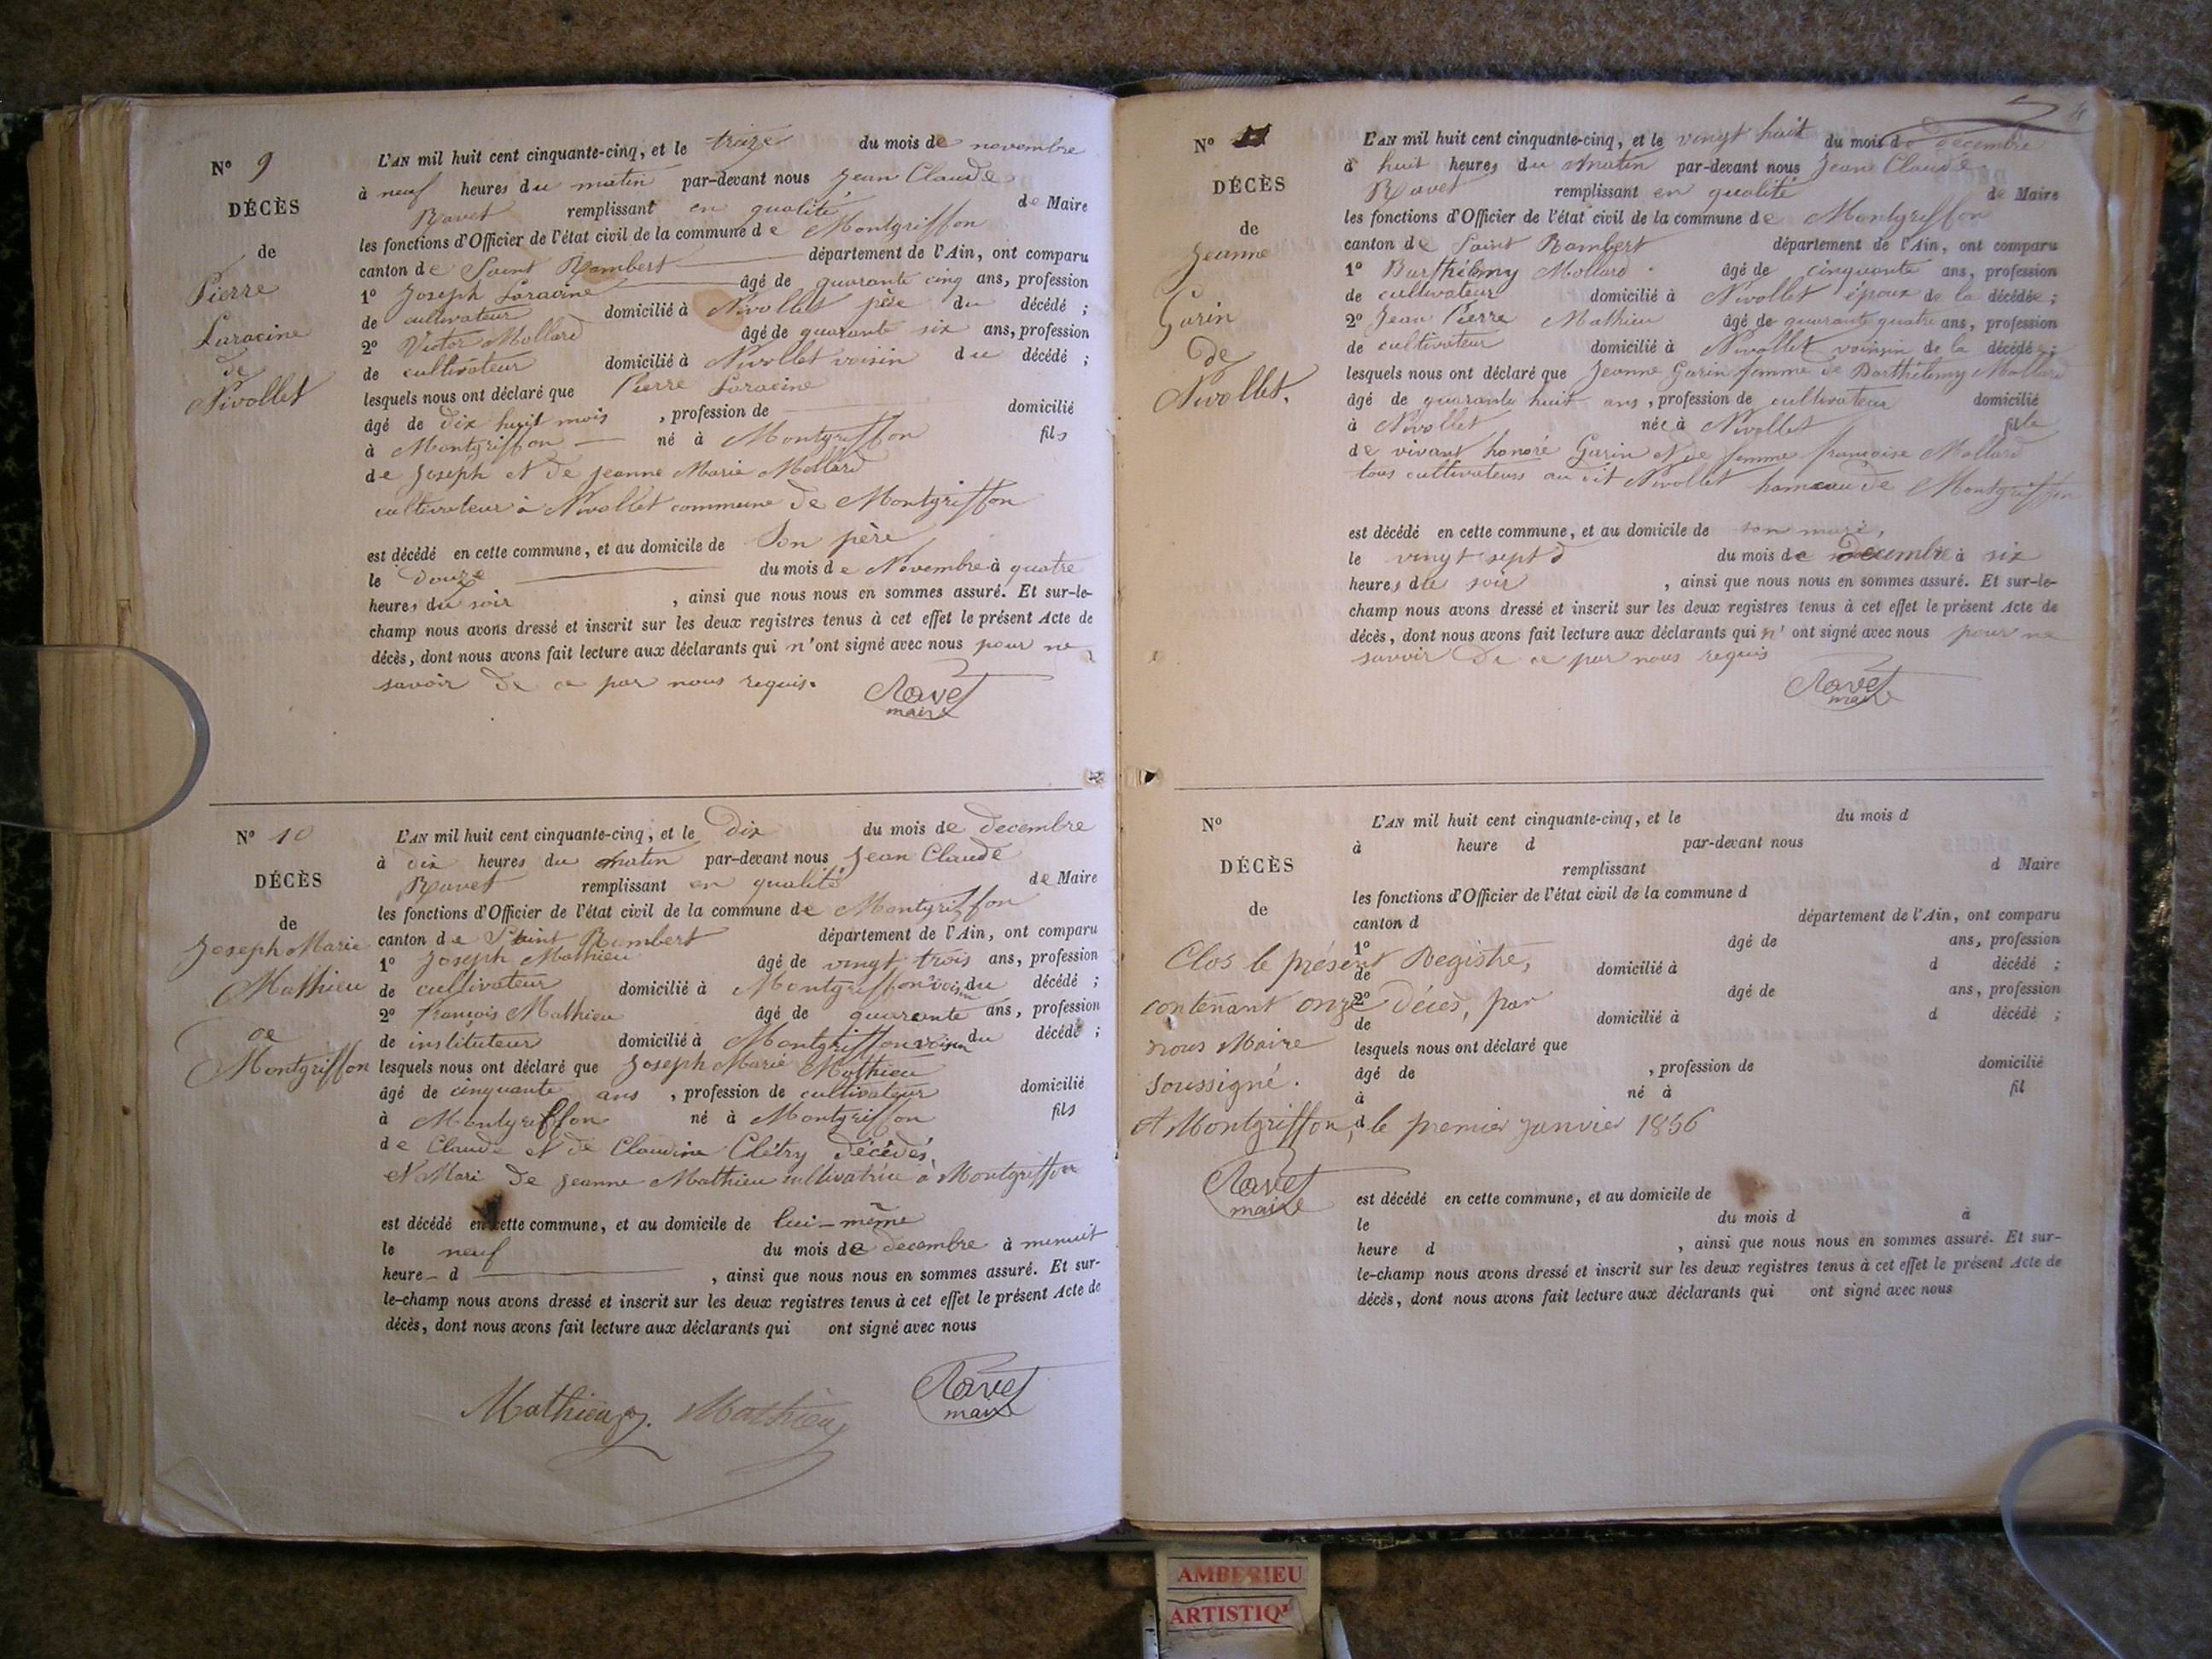 N° 9
DÉCÈS
de
Pierre
Laracine
de
Nivollet
L'AN mil huit cent cinquante-cinq, et le treize du mois de novembre
à neuf heures du matin par-devant nous Jean Claude
Ravet remplissant en qualité de Maire
les fonctions d'Officier de l'état civil de la commune de Montgriffon
canton de Saint Rambert département de l'Ain, ont comparu
1° Joseph Laracine âgé de quarante cinq ans, profession
de cultivateur domicilié à Nivollet père du décédé ;
2° Victor Mollard âgé de quarante six ans, profession
de cultivateur domicilié à Nivollet voisin du décédé ;
lesquels nous ont déclaré que Pierre Laracine
âgé de dix huit mois , profession de domicilié
à Montgriffon né à Montgriffon fils
de Joseph et de Jeanne Marie Mollard
cultivateur à Nivollet commune de Montgriffon
est décédé en cette commune, et au domicile de Son père
le Douze du mois de Novembre à quatre
heures du soir , ainsi que nous nous en sommes assuré. Et sur-le-
champ nous avons dressé et inscrit sur les deux registres tenus à cet effet le présent Acte de
décès, dont nous avons fait lecture aux déclarants qui n'ont signé avec nous pour ne
savoir De ce par nous requis.
Ravet
maire
N° 10
DÉCÈS
de
Joseph Marie
Mathieu
de
Montgriffon
L'AN mil huit cent cinquante-cinq, et le Dix du mois de decembre
à dix heures du matin par-devant nous Jean Claude
Ravet remplissant en qualité de Maire
les fonctions d'Officier de l'état civil de la commune de Montgriffon
canton de Saint Rambert département de l'Ain, ont comparu
1° Joseph Mathieu âgé de vingt trois ans, profession
de cultivateur domicilié à Montgriffon voisin du décédé ;
2° François Mathieu âgé de quarente ans, profession
de instituteur domicilié à Montgriffon voisin du décédé ;
lesquels nous ont déclaré que Joseph Marie Mathieu
âgé de cinquante ans , profession de cultivateur domicilié
à Montgriffon né à Montgriffon fils
de Claude et de Claudine Clétry décédés,
et Mari De Jeanne Mathieu cultivatrice à Montgriffon
est décédé en cette commune, et au domicile de lui-même
le neuf du mois de decembre à minuit
heure d , ainsi que nous nous en sommes assuré. Et sur-
le-champ nous avons dressé et inscrit sur les deux registres tenus à cet effet le présent Acte de
décès, dont nous avons fait lecture aux déclarants qui ont signé avec nous
Mathieu Mathieu
Ravet
maire
N°
DÉCÈS
de
Jeanne
Garin
de
Nivollet.
L'AN mil huit cent cinquante-cinq, et le vingt huit du mois de décembre
à huit heures du matin par-devant nous Jean Claude
Ravet remplissant en qualité de Maire
les fonctions d'Officier de l'état civil de la commune de Montgriffon
canton de Saint Rambert département de l'Ain, ont comparu
1° Barthélemy Mollard âgé de cinquante ans, profession
de cultivateur domicilié à Nivollet époux de la décédée ;
2° Jean Pierre Mathieu âgé de quarante quatre ans, profession
de cultivateur domicilié à Nivollet voinsin de la décédée ;
lesquels nous ont déclaré que Jeanne Garin femme de Barthélemy Mollard
âgé de quarante huit ans , profession de cultivateur domicilié
à Nivollet née à Nivollet fille
de vivant honoré Garin et de femme françoise Mollard
tous cultivateurs au dit Nivollet hameau de Montgriffon
est décédé en cette commune, et au domicile de son mari,
le vingt sept du mois de decembre à six
heures du soir , ainsi que nous nous en sommes assuré. Et sur-le-
champ nous avons dressé et inscrit sur les deux registres tenus à cet effet le présent Acte de
décès, dont nous avons fait lecture aux déclarants qui n'ont signé avec nous pour ne
savoir De ce par nous requis
Ravet
maire
N°
DÉCÈS
de
L'AN mil huit cent cinquante-cinq, et le du mois d
à heure d par-devant nous
remplissant d Maire
les fonctions d'Officier de l'état civil de la commune d
canton d département de l'Ain, ont comparu
1° âgé de ans, profession
de domicilié à d décédé ;
2° âgé de ans, profession
de domicilié à d décédé ;
lesquels nous ont déclaré que
âgé de , profession de domicilié
à né à fil
d
Clos le présent Registre,
contenant onze décès, par
nous Maire
soussigné.
A Montgriffon, le premier janvier 1856
Ravet
maire
est décédé en cette commune, et au domicile de
le du mois d à
heure d , ainsi que nous nous en sommes assuré. Et sur-
le-champ nous avons dressé et inscrit sur les deux registres tenus à cet effet le présent Acte de
décès, dont nous avons fait lecture aux déclarants qui ont signé avec nous
AMBERIEU
ARTISTIQ